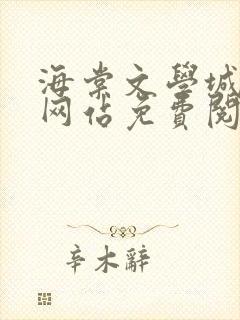 海棠文學城
网佔免費閱
辛木辭